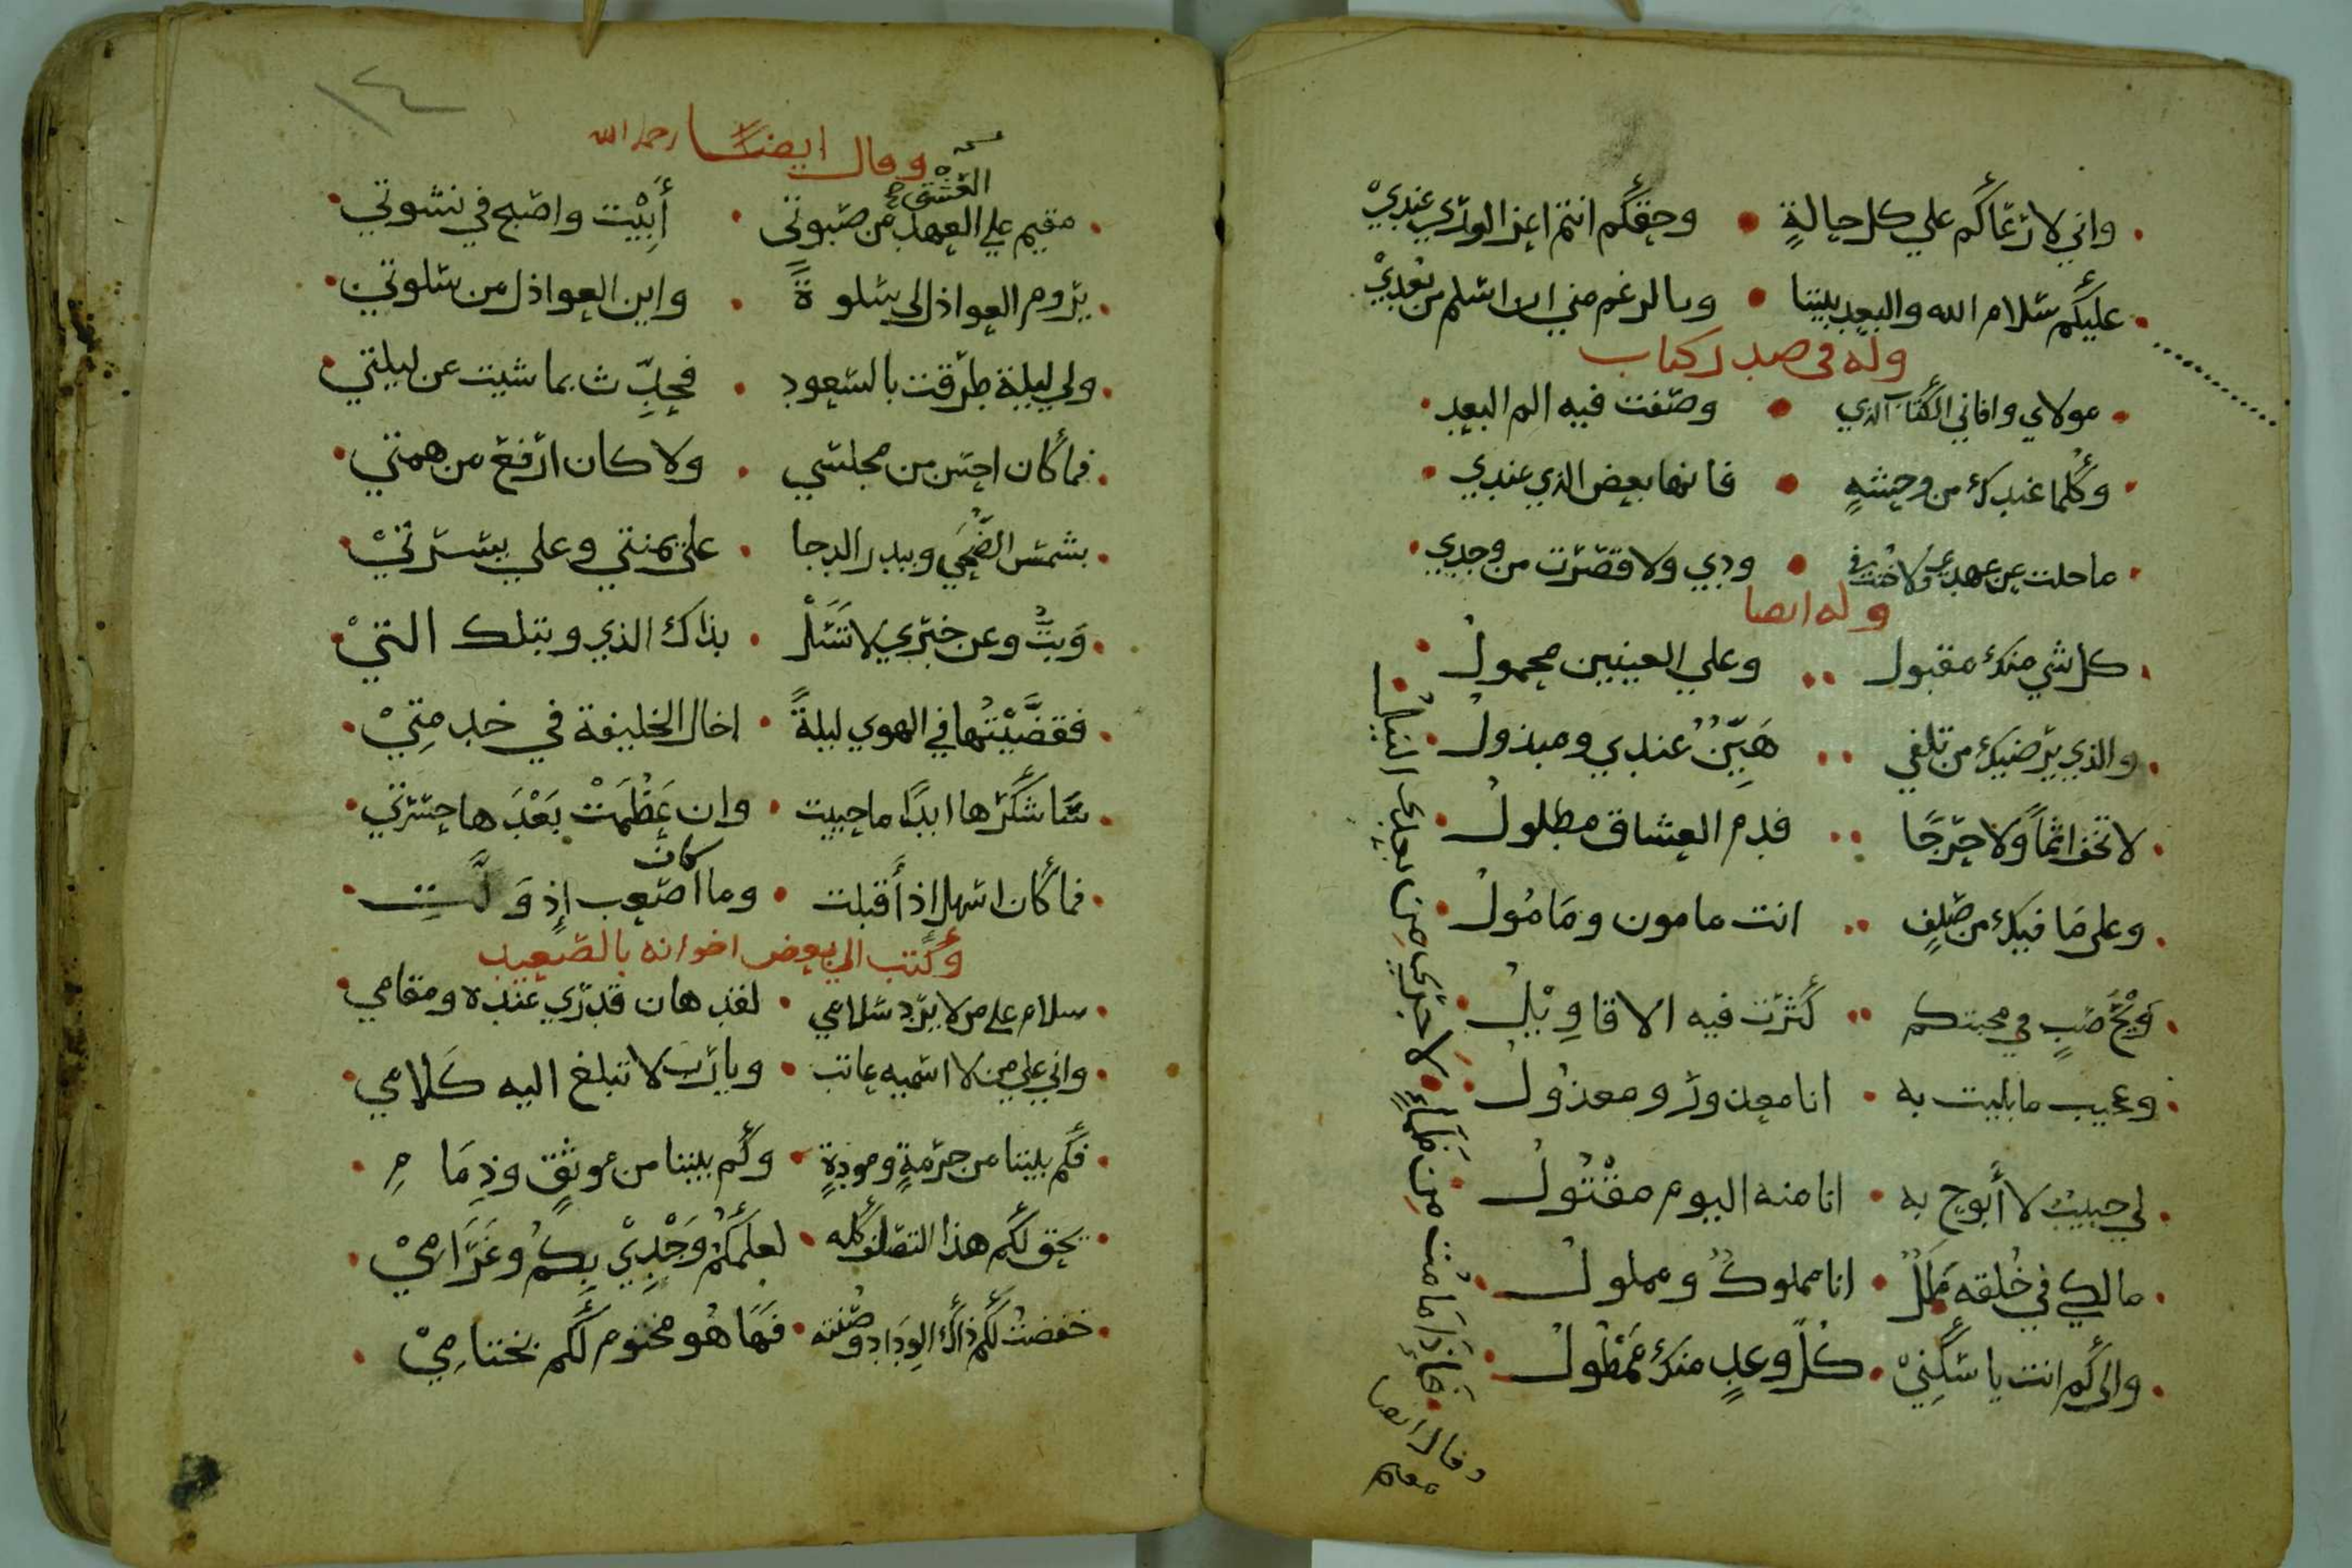 واني لارعاكم علي كل حالةٍ • وحقكم انتم اعز الوري عنديْ
عليكم سلام الله والبعد بيننا • وبالرغم مني ان اسلم من بُعديْ
وله في صدر كتاب
مولاي وافاني الكتاب الذي • وصفت فيه الم البعد
وكلما عندك من وحشةٍ • فانها بعض الذي عندي
ما حلت عن عهدي ولا خنت في • ودي ولا قصرت من وجدي
وله ايضا
كل شي منك مقبول •• وعلي العينين محمولُ
والذي يرضيك من تلفي •• هَيِّنٌ عندي ومبذولُ
لا تخف اثماً ولا حرجًا •• فدم العشاق مطلولُ
وعلي مَا فيك من صلفٍ •• انت مامون ومَامُولُ
وَيْحَ صَبٍ في محبتكم •• كَثرت فيه الاقاوِيْلُ
وعجيب ما بليت به • انا معذورٌ ومعذولُ
لي حبيبٌ لا أبوح به • انا منه اليوم مقْتُولُ
مالكي في خُلقه مَلَلٌ • انا مملوكٌ ومملولُ
والي كم انت يا سَكَنِيْ • كلُّ وعدٍ منك مَمْطُولُ
فَإِذَا مَا مُت مِن ظَمَاءٍ • لا جَرَى مِن بعدى النيلُ
وقال ايضا
١٤
وقال ايضًا رحمه الله
العشق
مقيم علي العهد من صبوتي • أَبِيْت واصبح في نشوتي
يروم العواذل لي سلوةً • واين العواذل من سلوتي
ولي ليلة طرقت بالسعود • فحدِّث بما شيت عن ليلتي
فما كان احسن من مجلسي • ولا كان ارفع من همتي
بشمس الضُّحَي وببدر الدجا • علي يمنتي وعلي يسرتيْ
وَبتُّ وعن خبري لا تَسَلْ • بذاك الذي وبتلك التيْ
فقضَّيْتُها في الهوي ليلةً • اخال الخليفة في خدمتِيْ
سَاشكرها ابدًا ما حييت • وان عَظُمَتْ بَعْدَها حسرتي
كان
فما كان اسهل اذ أَقبلت • وما اصعب إِذ وَلَّت
وكتب الي بعض اخوانه بالصعيد
سلام علي من لا يرد سلامي • لقد هان قدري عنده ومقامي
واني علي من لا اسميه عاتب • ويا رب لا تبلغ اليه كَلامي
فكم بيننا من حرمةٍ ومودةٍ • وكم بيننا من موثقٍ وذِمَامِ
يحق لكم هذا التصلف كله • لعلمكُمُ وَجْدِيْ بِكمُ وغَرَامِيْ
حفضتُ لكم ذاك الوِدَاد وصُنته • فَهَا هُو مختوم لكم بختامِيْ